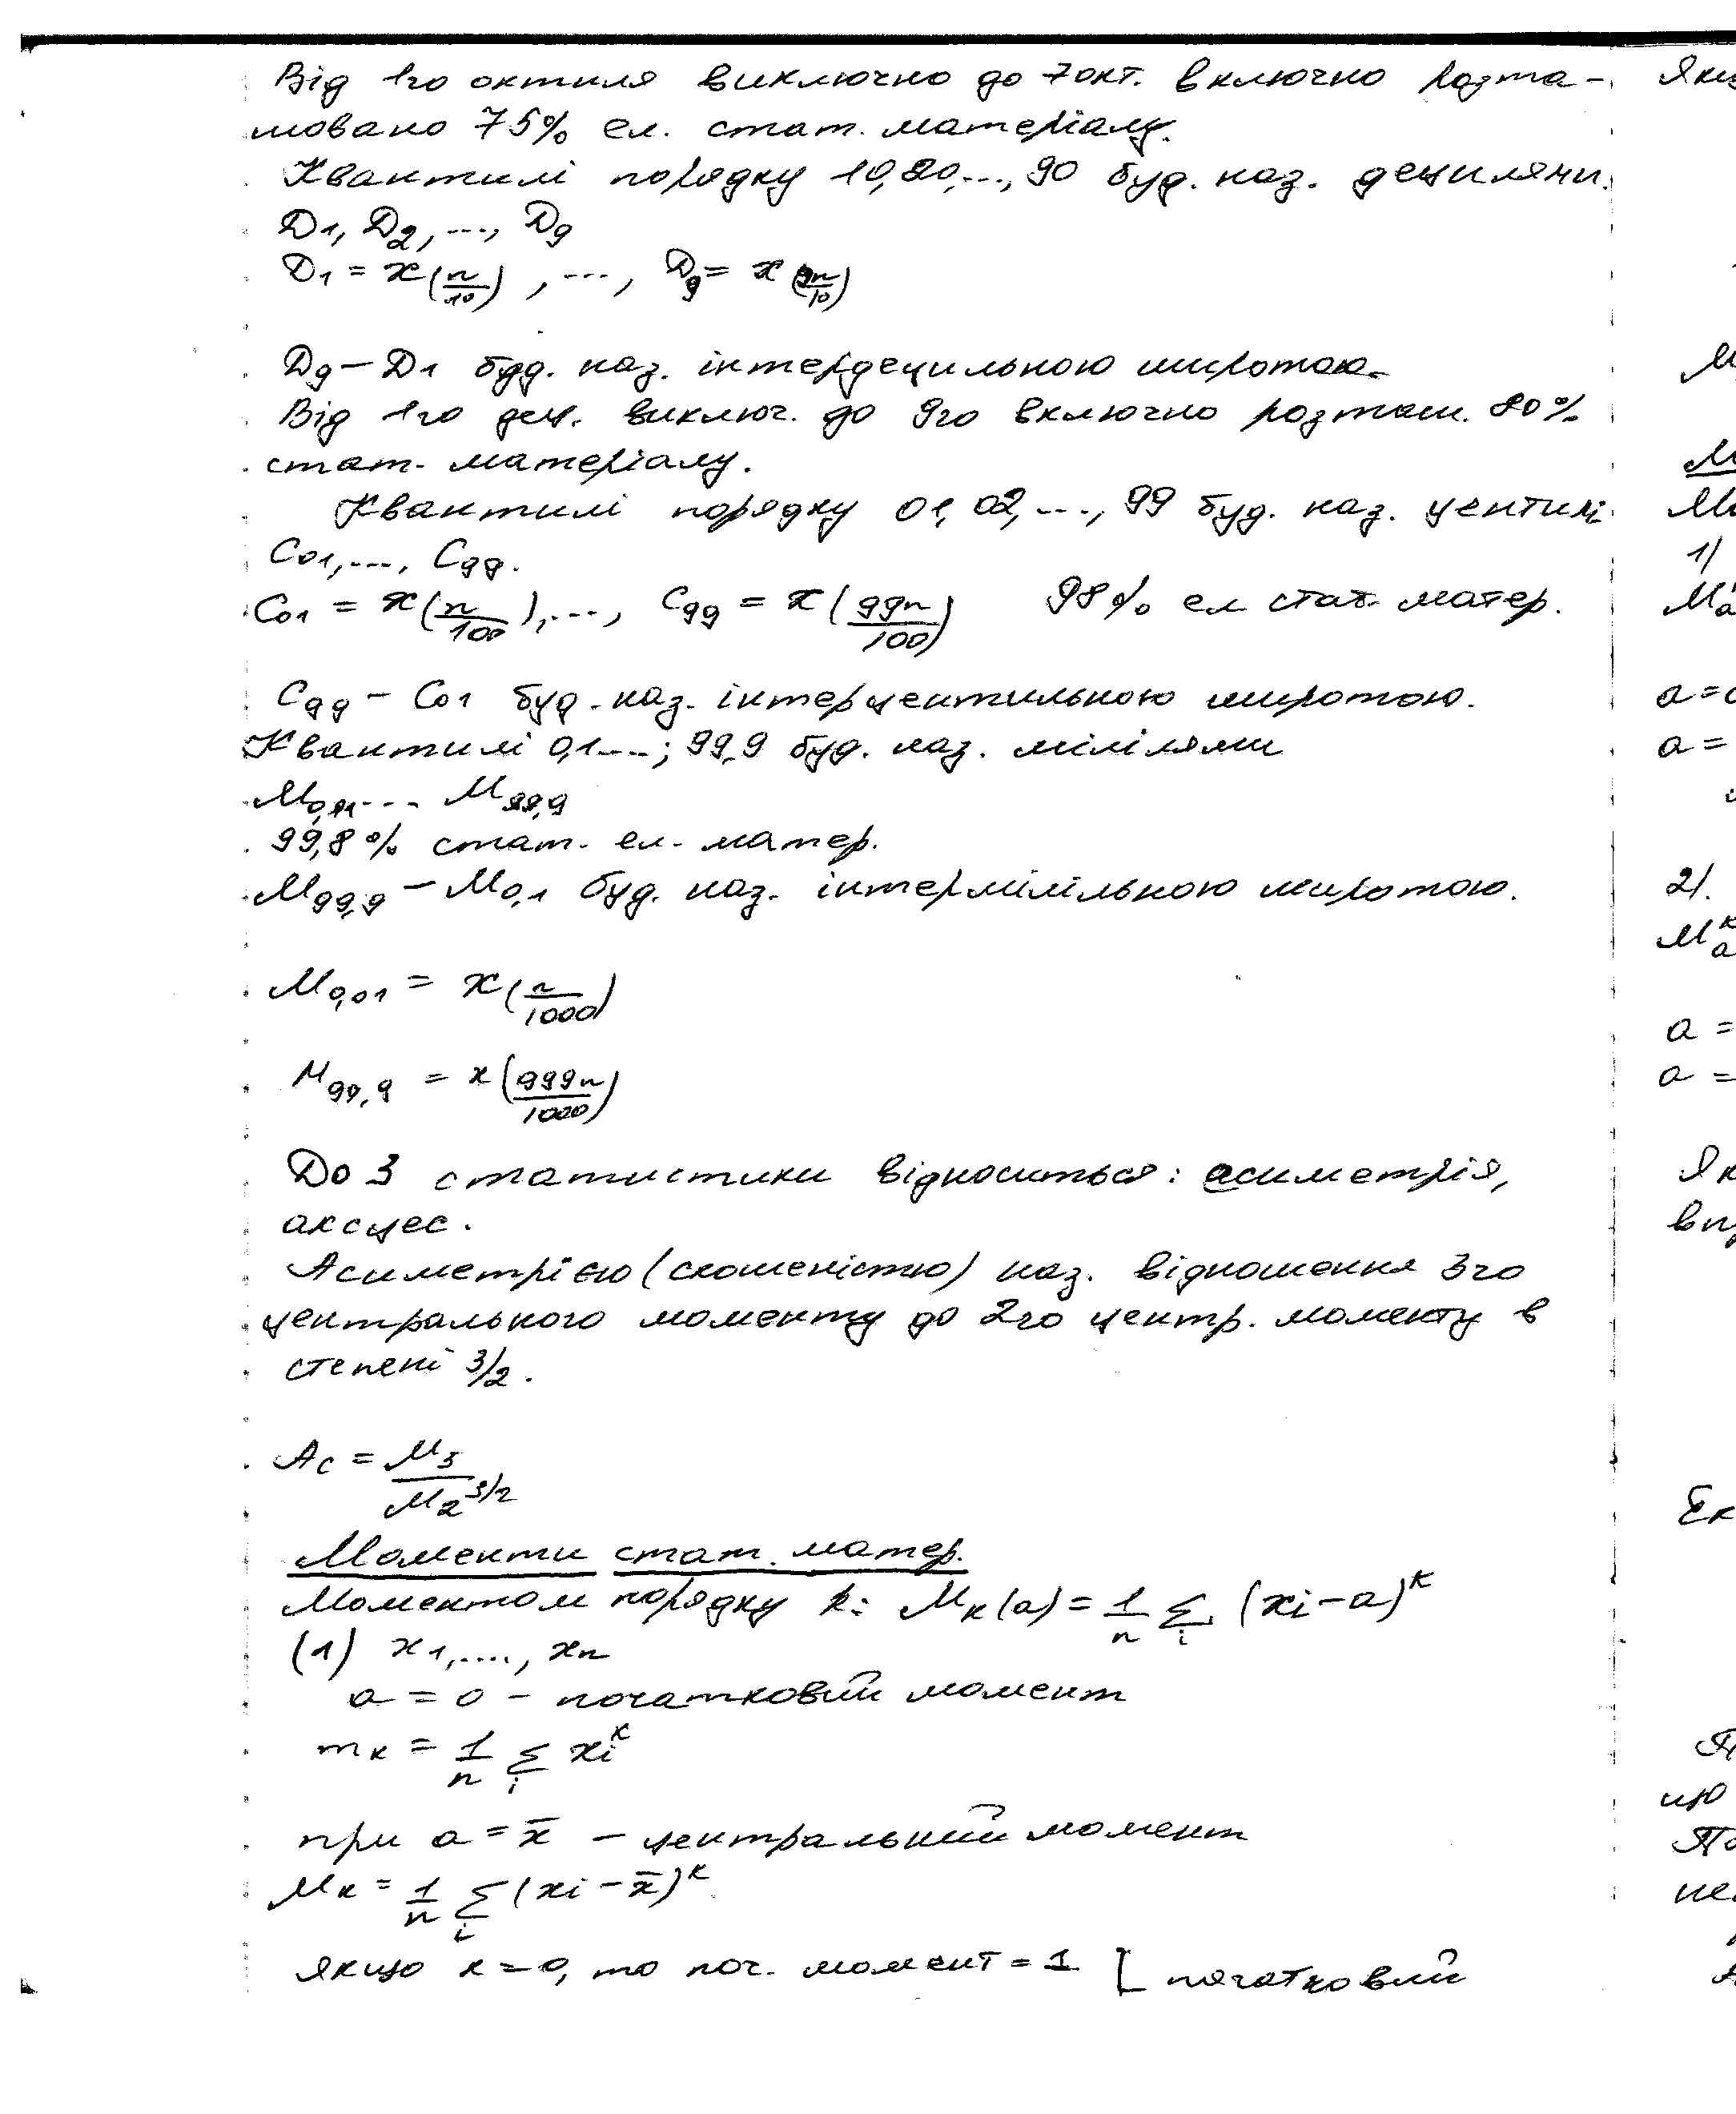 Від 1го октиля виключно до 7 окт. включно розта-
шовано 75% ел. стат. матеріалу.
Квантилі порядку 10, 20, ..., 90 буд. наз. децилями.
D1, D2, ..., D9
D1 = x(n/10), ..., D9 = x(9n/10)
D9 – D1 буд. наз. інтердецильною широтою.
Від 1го дец. виключ. до 9го включно розташ. 80%
стат. матеріалу.
Квантилі порядку 01, 02, ..., 99 буд. наз. центилі
C01, ..., C99.
C01 = x(n/100), ..., C99 = x(99n/100) 98% ел стат. матер.
C99 – C01 буд. наз. інтерцентильною широтою.
Квантилі 0,1...; 99,9 буд. наз. мілілями
M0,01... M99,9
99,8% стат. ел. матер.
M99,9 – M0,1 буд. наз. інтермілільною широтою.
M0,01 = x(n/1000)
M99,9 = x(999n/1000)
До 3 статистики відноситься: асиметрія,
аксцес.
Асиметрією (скошеністю) наз. відношення 3го
центрального моменту до 2го центр. моменту в
степені 3/2.
Ac = M3/M2^3/2
Моменти стат. матер.
Моментом порядку k: Mk(a) = 1/n Σi (xi – a)^k
(1) x1, ...., xn
a = 0 – початковий момент
mk = 1/n Σi xi^k
при a = x̄ – центральний момент
Mk = 1/n Σi (xi – x̄)^k
якщо k = 0, то поч. момент = 1 [ початковий